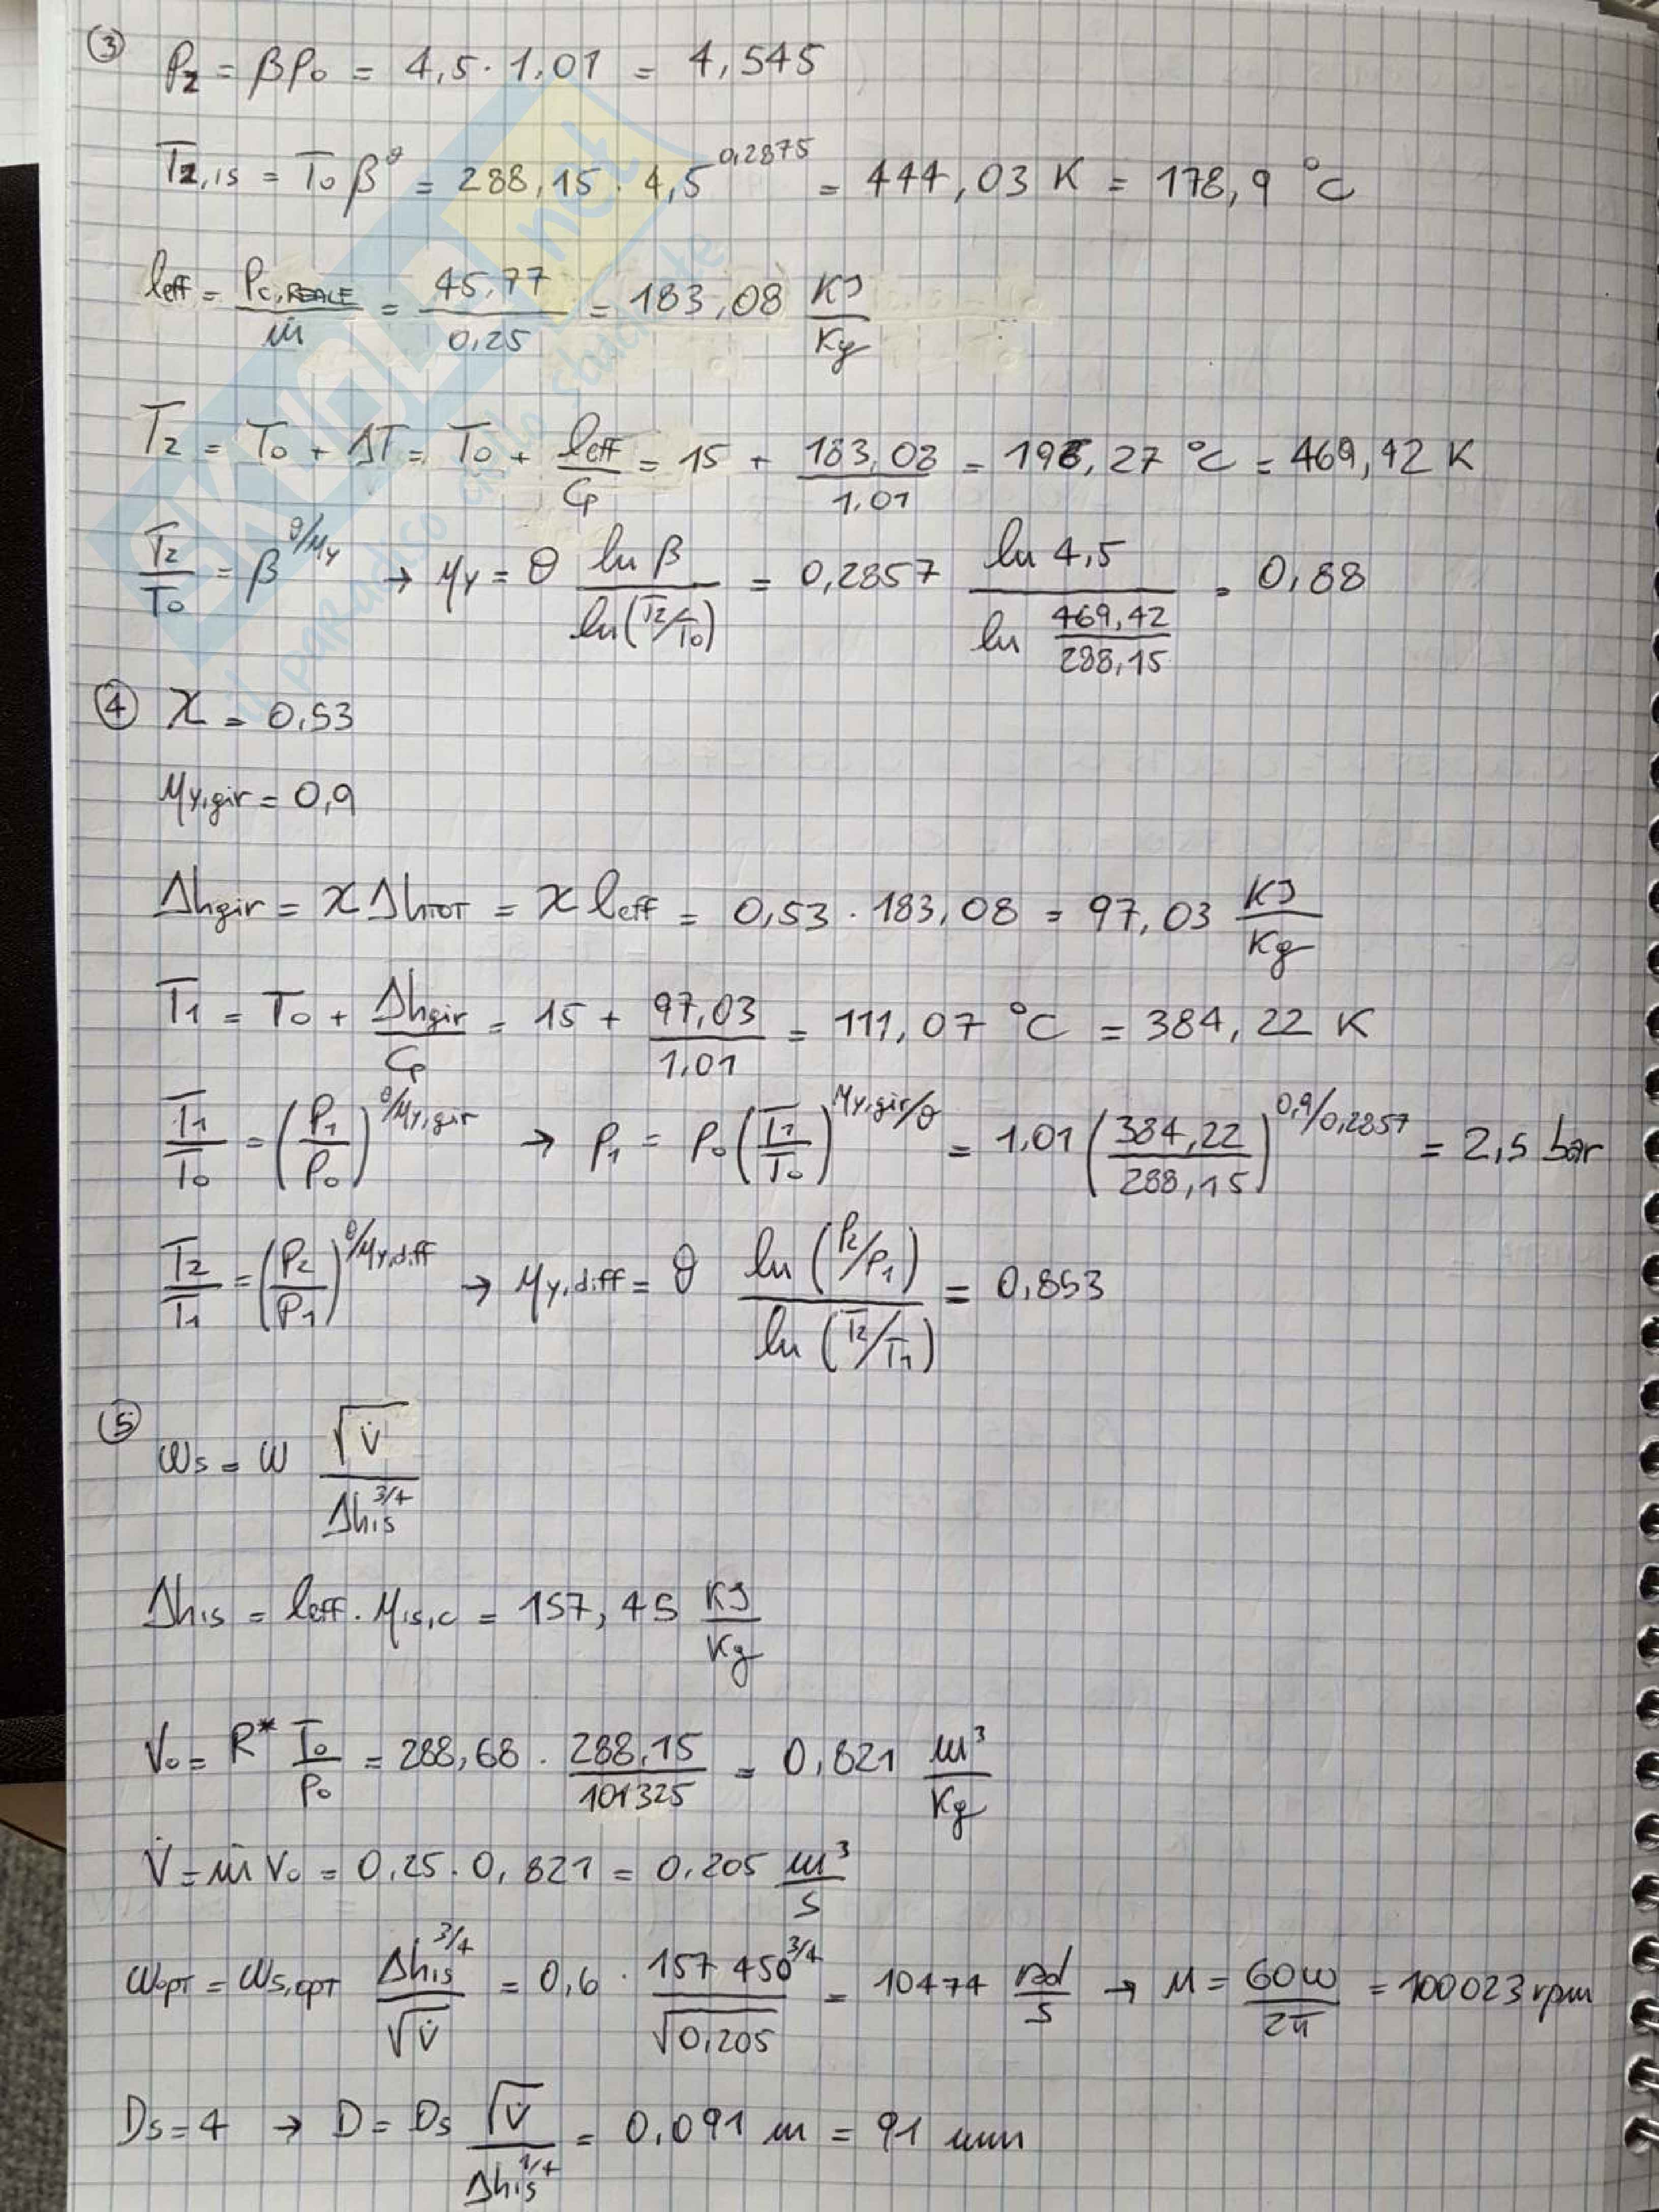 ③ P₂ = βP₀ = 4,5 · 1,01 = 4,545
T₂,is = T₀ β^θ = 288,15 · 4,5^0,2875 = 444,03 K = 178,9 °C
leff = Pc,REALE / ṁ = 45,77 / 0,25 = 183,08 KJ/Kg
T₂ = T₀ + ΔT = T₀ + leff/Cp = 15 + 183,08/1,01 = 196,27 °C = 469,42 K
T₂/T₀ = β^(θ/μy) → μy = θ ln β / ln(T₂/T₀) = 0,2857 ln 4,5 / ln (469,42/288,15) = 0,88
④ χ = 0,53
μy,gir = 0,9
Δhgir = χ ΔhTOT = χ leff = 0,53 · 183,08 = 97,03 KJ/Kg
T₁ = T₀ + Δhgir/Cp = 15 + 97,03/1,01 = 111,07 °C = 384,22 K
T₁/T₀ = (P₁/P₀)^(θ/μy,gir) → P₁ = P₀ (T₁/T₀)^(μy,gir/θ) = 1,01 (384,22/288,15)^(0,9/0,2857) = 2,5 bar
T₂/T₁ = (P₂/P₁)^(θ/μy,diff) → μy,diff = θ ln (P₂/P₁) / ln (T₂/T₁) = 0,853
⑤ ωs = ω √V̇ / Δhis^(3/4)
Δhis = leff · μis,c = 157,45 KJ/Kg
V₀ = R* T₀/P₀ = 288,68 · 288,15/101325 = 0,821 m³/Kg
V̇ = ṁ V₀ = 0,25 · 0,821 = 0,205 m³/s
ωopt = ωs,opt Δhis^(3/4) / √V̇ = 0,6 · 157 450^(3/4) / √0,205 = 10474 rad/s → M = 60ω/2π = 100023 rpm
Ds = 4 → D = Ds √V̇ / Δhis^(1/4) = 0,091 m = 91 mm
SKUOLA.net
il paradiso dello studente